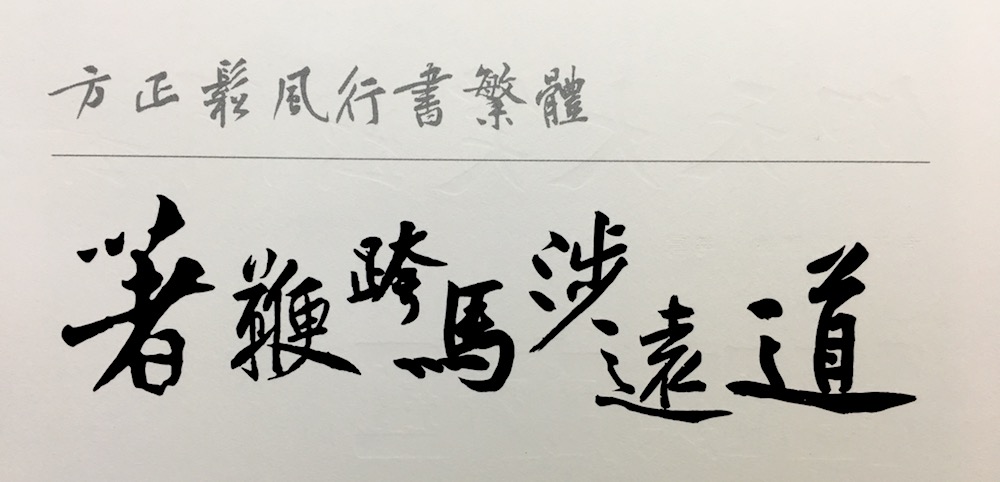 方正鬆風行書繁體
著鞭跨馬涉遠道